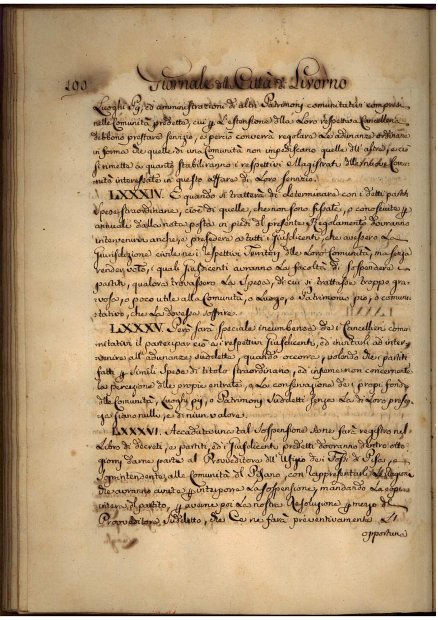 190 Giornale della Città di Livorno
Luoghi Pij, ed amministrazioni di altri Patrimoni comunitativi compresi
nelle Comunità predette, cui per l'estensione della Loro respettiva Cancelleria
debbono prestare servizio, e perciò converrà regolare le adunanze ordinarie
in forma che quelle di una Comunità non impediscano quelle dell'altra, e ci
si rimette a quanto stabiliranno i respettivi Magistrati delle Comu-
nità interessate in questo affare di Loro servizio.
LXXXIV. E quando si tratterà di determinare con i detti partiti
spese straordinarie, cioè di quelle, che non sono fissate, o conosciute per
annuali dalla nota posta in piedi del presente Regolamento dovranno
intervenirvi anche, e presedere a tutti i Jusdicenti, che avessero La
Giurisdizione civile nei respettivi Territori delle Loro Comunità, ma senza
render voto, i quali Jusdicenti avranno La facoltà di sospendere i
partiti, qualora trovassero La spesa, di cui si trattasse troppo gra-
vosa, o poco utile alla Comunità, o Luogo, o Patrimonio pio, o comuni-
tativo, che La dovesse soffrire.
LXXXV. Però sarà speciale incumbenza de i Cancellieri comu-
nitativi il partecipar ciò a i respettivi Jusdicenti, ed invitarli ad inter-
venire all'adunanze suddette, quando occorra, volendo che i partiti
fatti per simili spese di titolo straordinario, ed insieme non concernenti
La percezione delle proprie entrate, o La conservazione de i propi fondi
delle Comunità, Luoghi pij, o Patrimoni suddetti senza La di Loro presenza
siano nulli, e di niun valore.
LXXXVI. Accadendo una tal Sospensione se ne farà registro nel
Libro di decreti, e partiti, ed i Jusdicenti predetti dovranno dentro otto
giorni darne parte al Provveditore dell'Ufizio dei Fossi di Pisa
Soprintendente alle Comunità di Pisano, con rappresentarli Le ragioni
che avranno avute per interporre La sospensione, mandando La copia
intera del partito, per averne poi La nostra Resoluzione per mezzo del
Provveditore suddetto, che Ce ne farà preventivamente Le
opportune